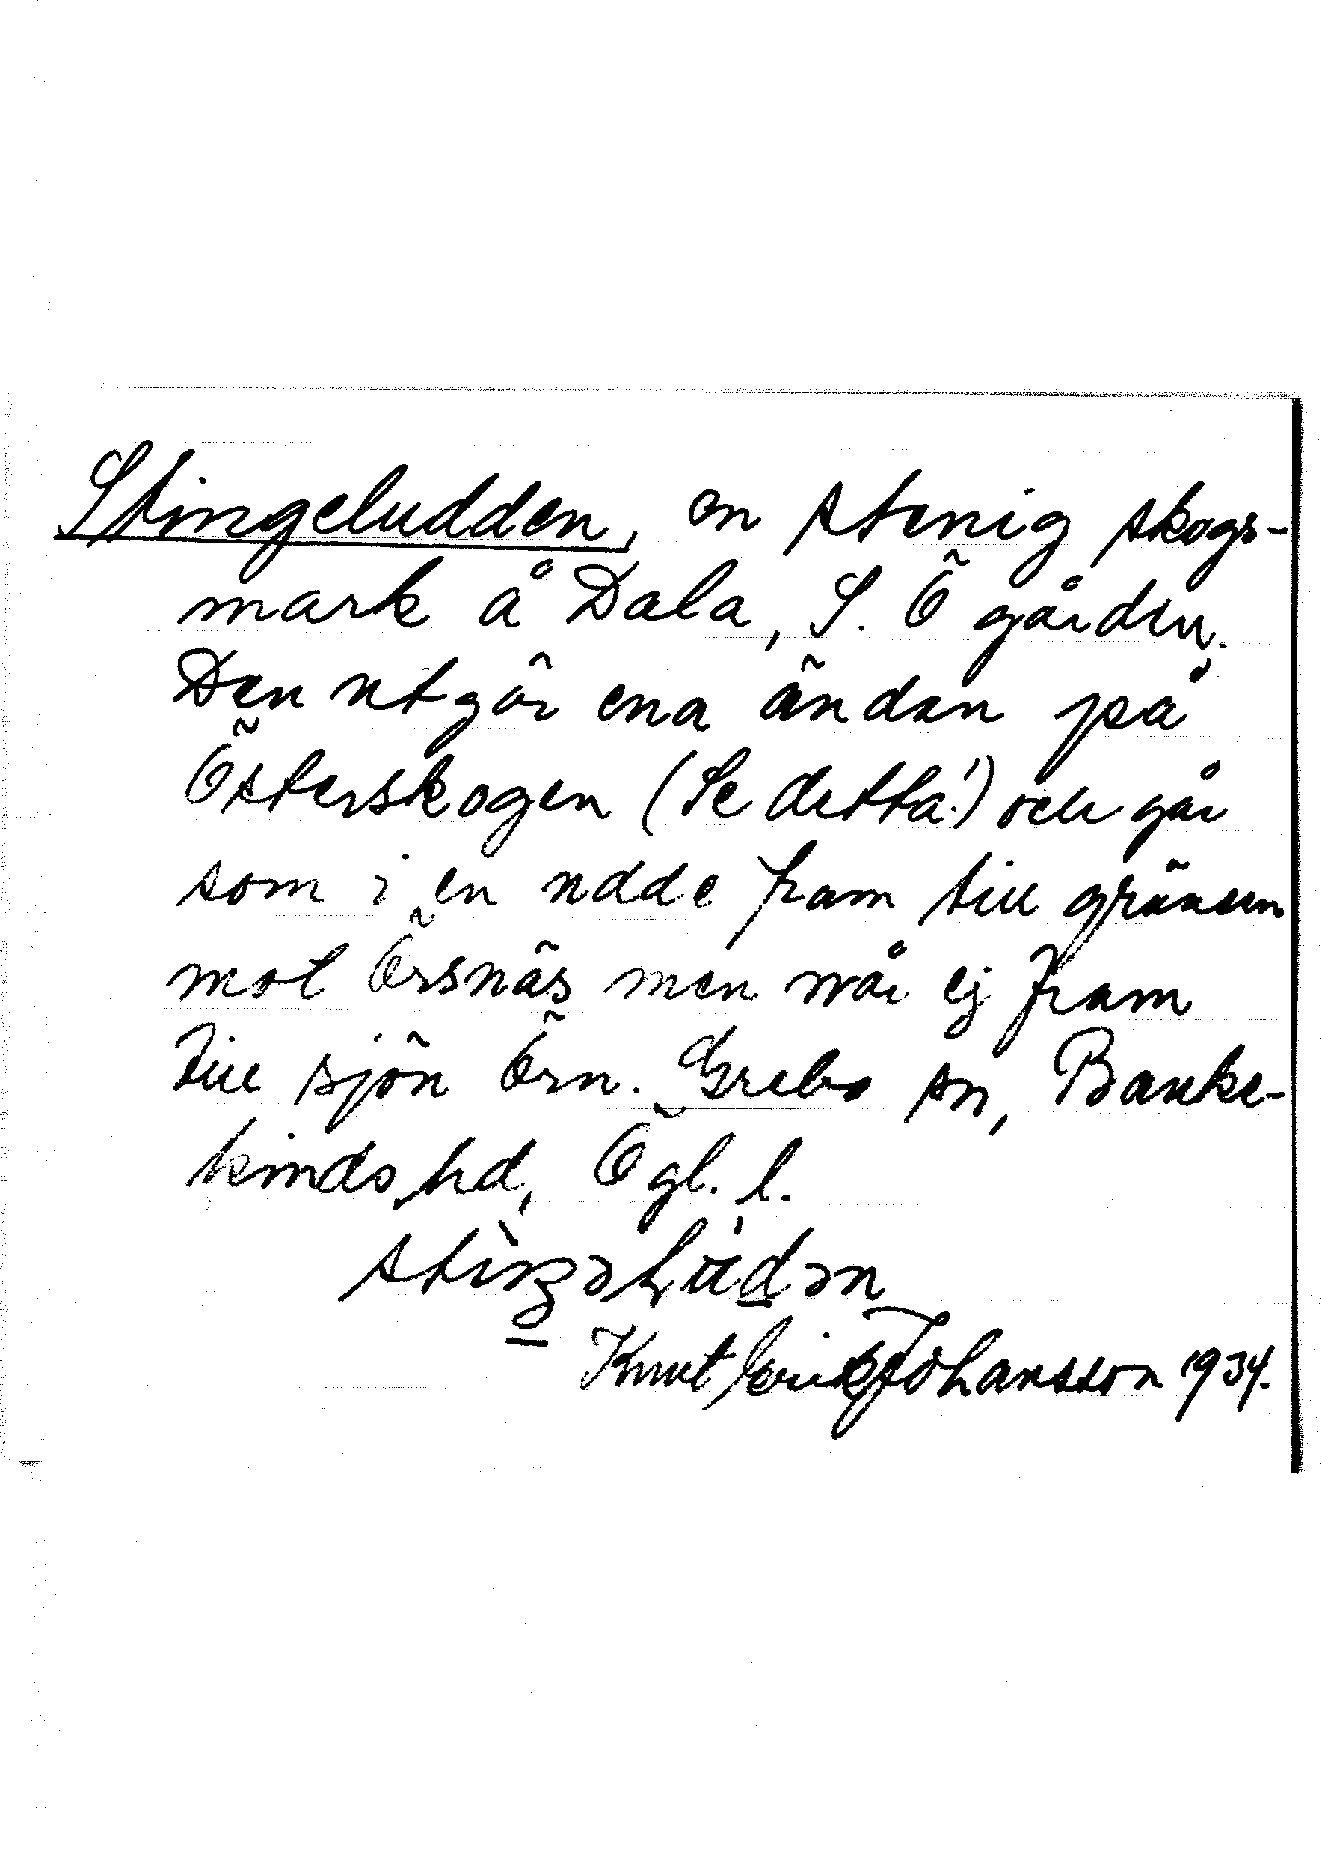 Stingeludden, en stenig skogs-
mark å Dala, S. Ö gården.
Den utgör ena ändan på
Österskogen (Se detta!) och går
som i en udde fram till gränsen
mot Örsnäs men når ej fram
till sjön Örn. Grebo sn, Banke-
kinds hd, Ögl. l.
Knut Erik Johansson 1934.